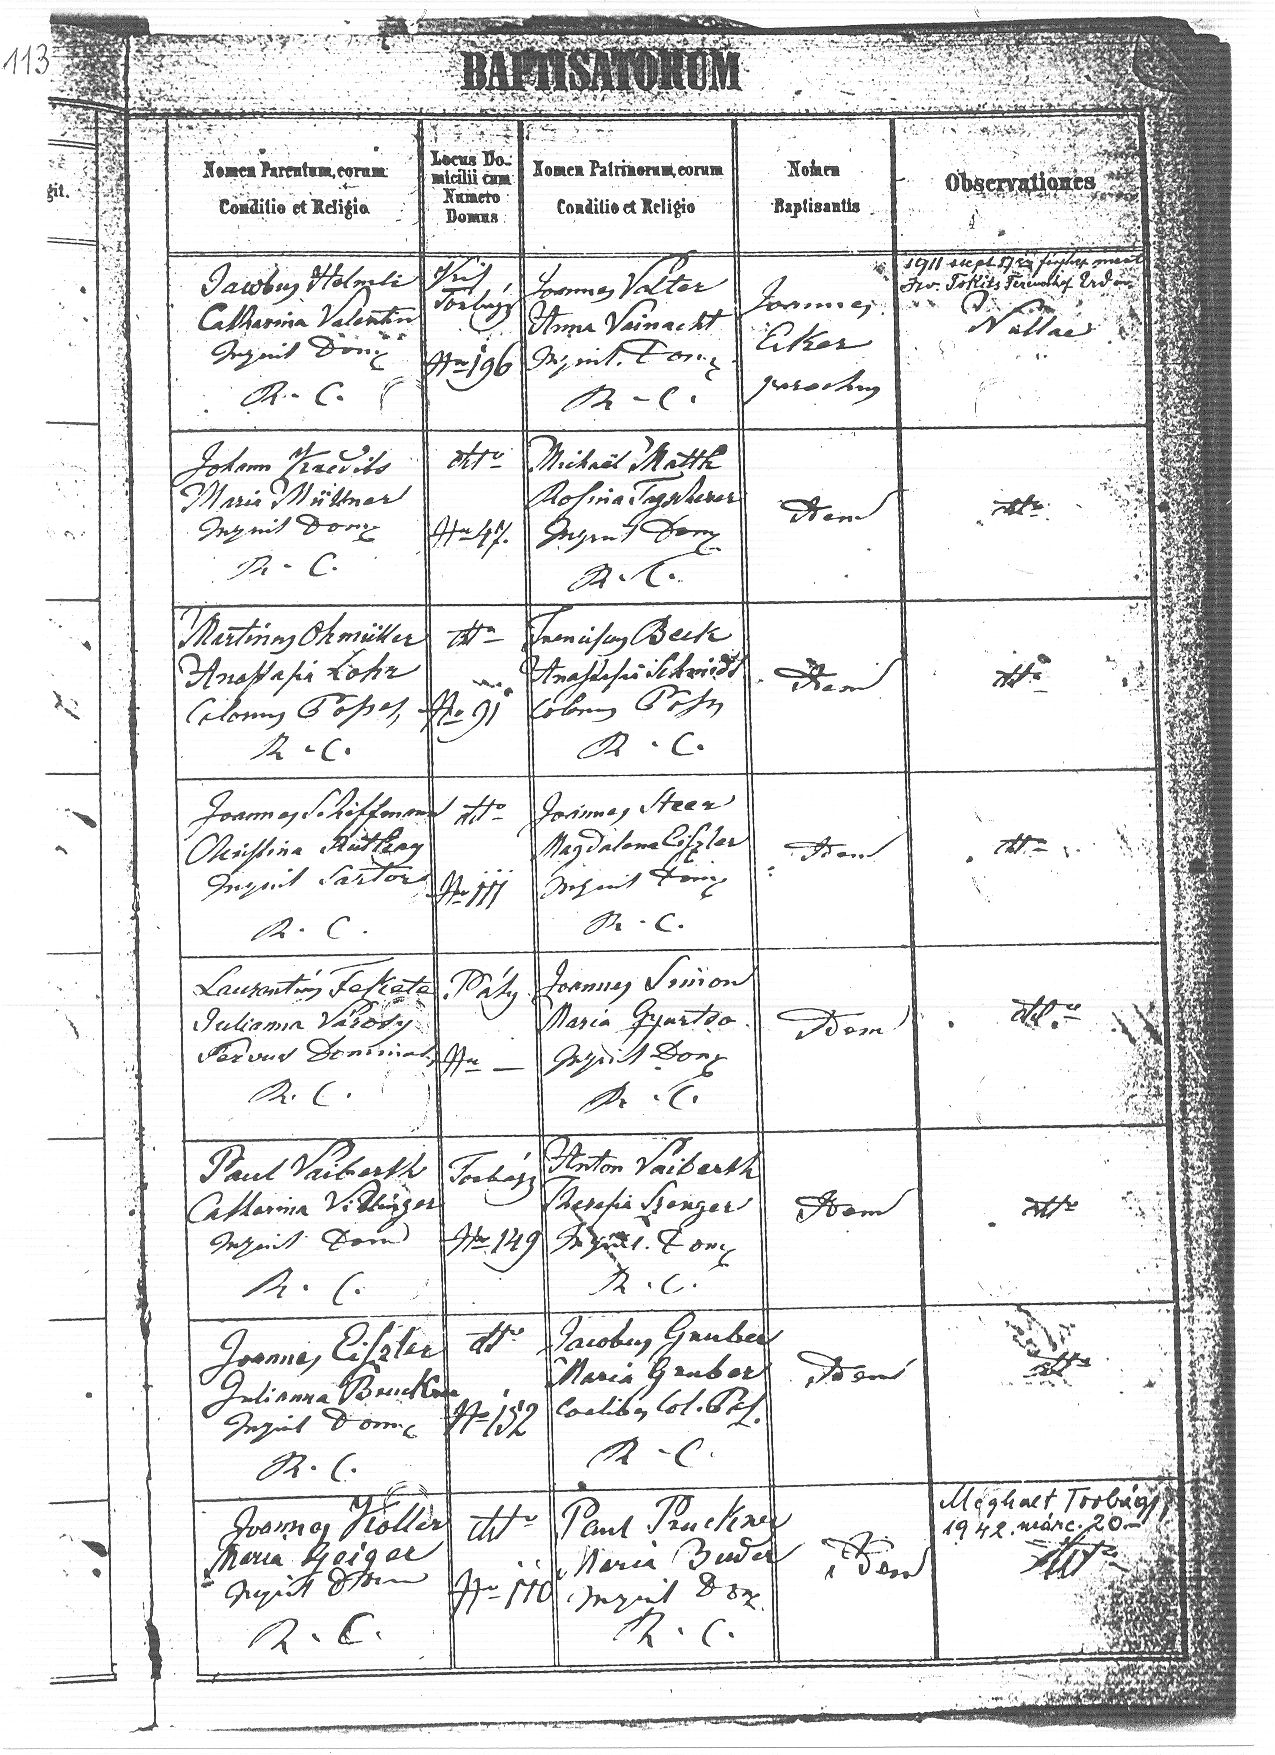 113
BAPTISATORUM
git.
Nomen Parentum, eorum
Conditio et Religio
Locus Do-
micilii cum
Numero
Domus
Nomen Patrinorum, eorum
Conditio et Religio
Nomen
Baptisantis
Observationes
Jacobus
Catharina Valentin
Inquil Domz
R. C.
Torbágy
Nro 196
Joannes Valter
Anna Vainacht
Inquil. Domz
R. C.
Joannes
Eker
parochus
1911 sept.
Nullae
Johann
Maria Müllner
Inquil Domz
R. C.
dtto
Nro 47.
Michaël
Rosina
Inquil Domz
R. C.
Idem
dtto
Martinus Ohmüller
Anastasia Lohr
Colonus
R. C.
dtto
Nro 91
Franciscus Beck
Anastasia Schmidt
Colonus
R. C.
Idem
dtto
Joannes Schiffmann
Christina
Inquil Sartor
R. C.
dtto
Nro 111
Joannes Steer
Magdalena Eiszler
Inquil Domz
R. C.
Idem
dtto
Laurentius Fekete
Julianna Városy
Servus Dominalis
R. C.
Páty
Nro —
Joannes Simon
Maria
Inquil Domz
R. C.
Idem
dtto
Paul Vaiberth
Catharina
Inquil Dom
R. C.
Torbágy
Nro 149
Anton Vaiberth
Theresia Szenger
Inquil. Domz
R. C.
Idem
dtto
Joannes Eiszler
Julianna Bruckner
Inquil Domz
R. C.
dtto
Nro 152
Jacobus Gruber
Maria Gruber
Coelibes Col.
R. C.
Idem
dtto
Joannes Koller
Maria Geiger
Inquil Dom
R. C.
dtto
Nro 110
Paul Pruckner
Maria Buder
Inquil Domz
R. C.
Idem
Meghalt Torbágy,
1942. márc. 20-
dtto